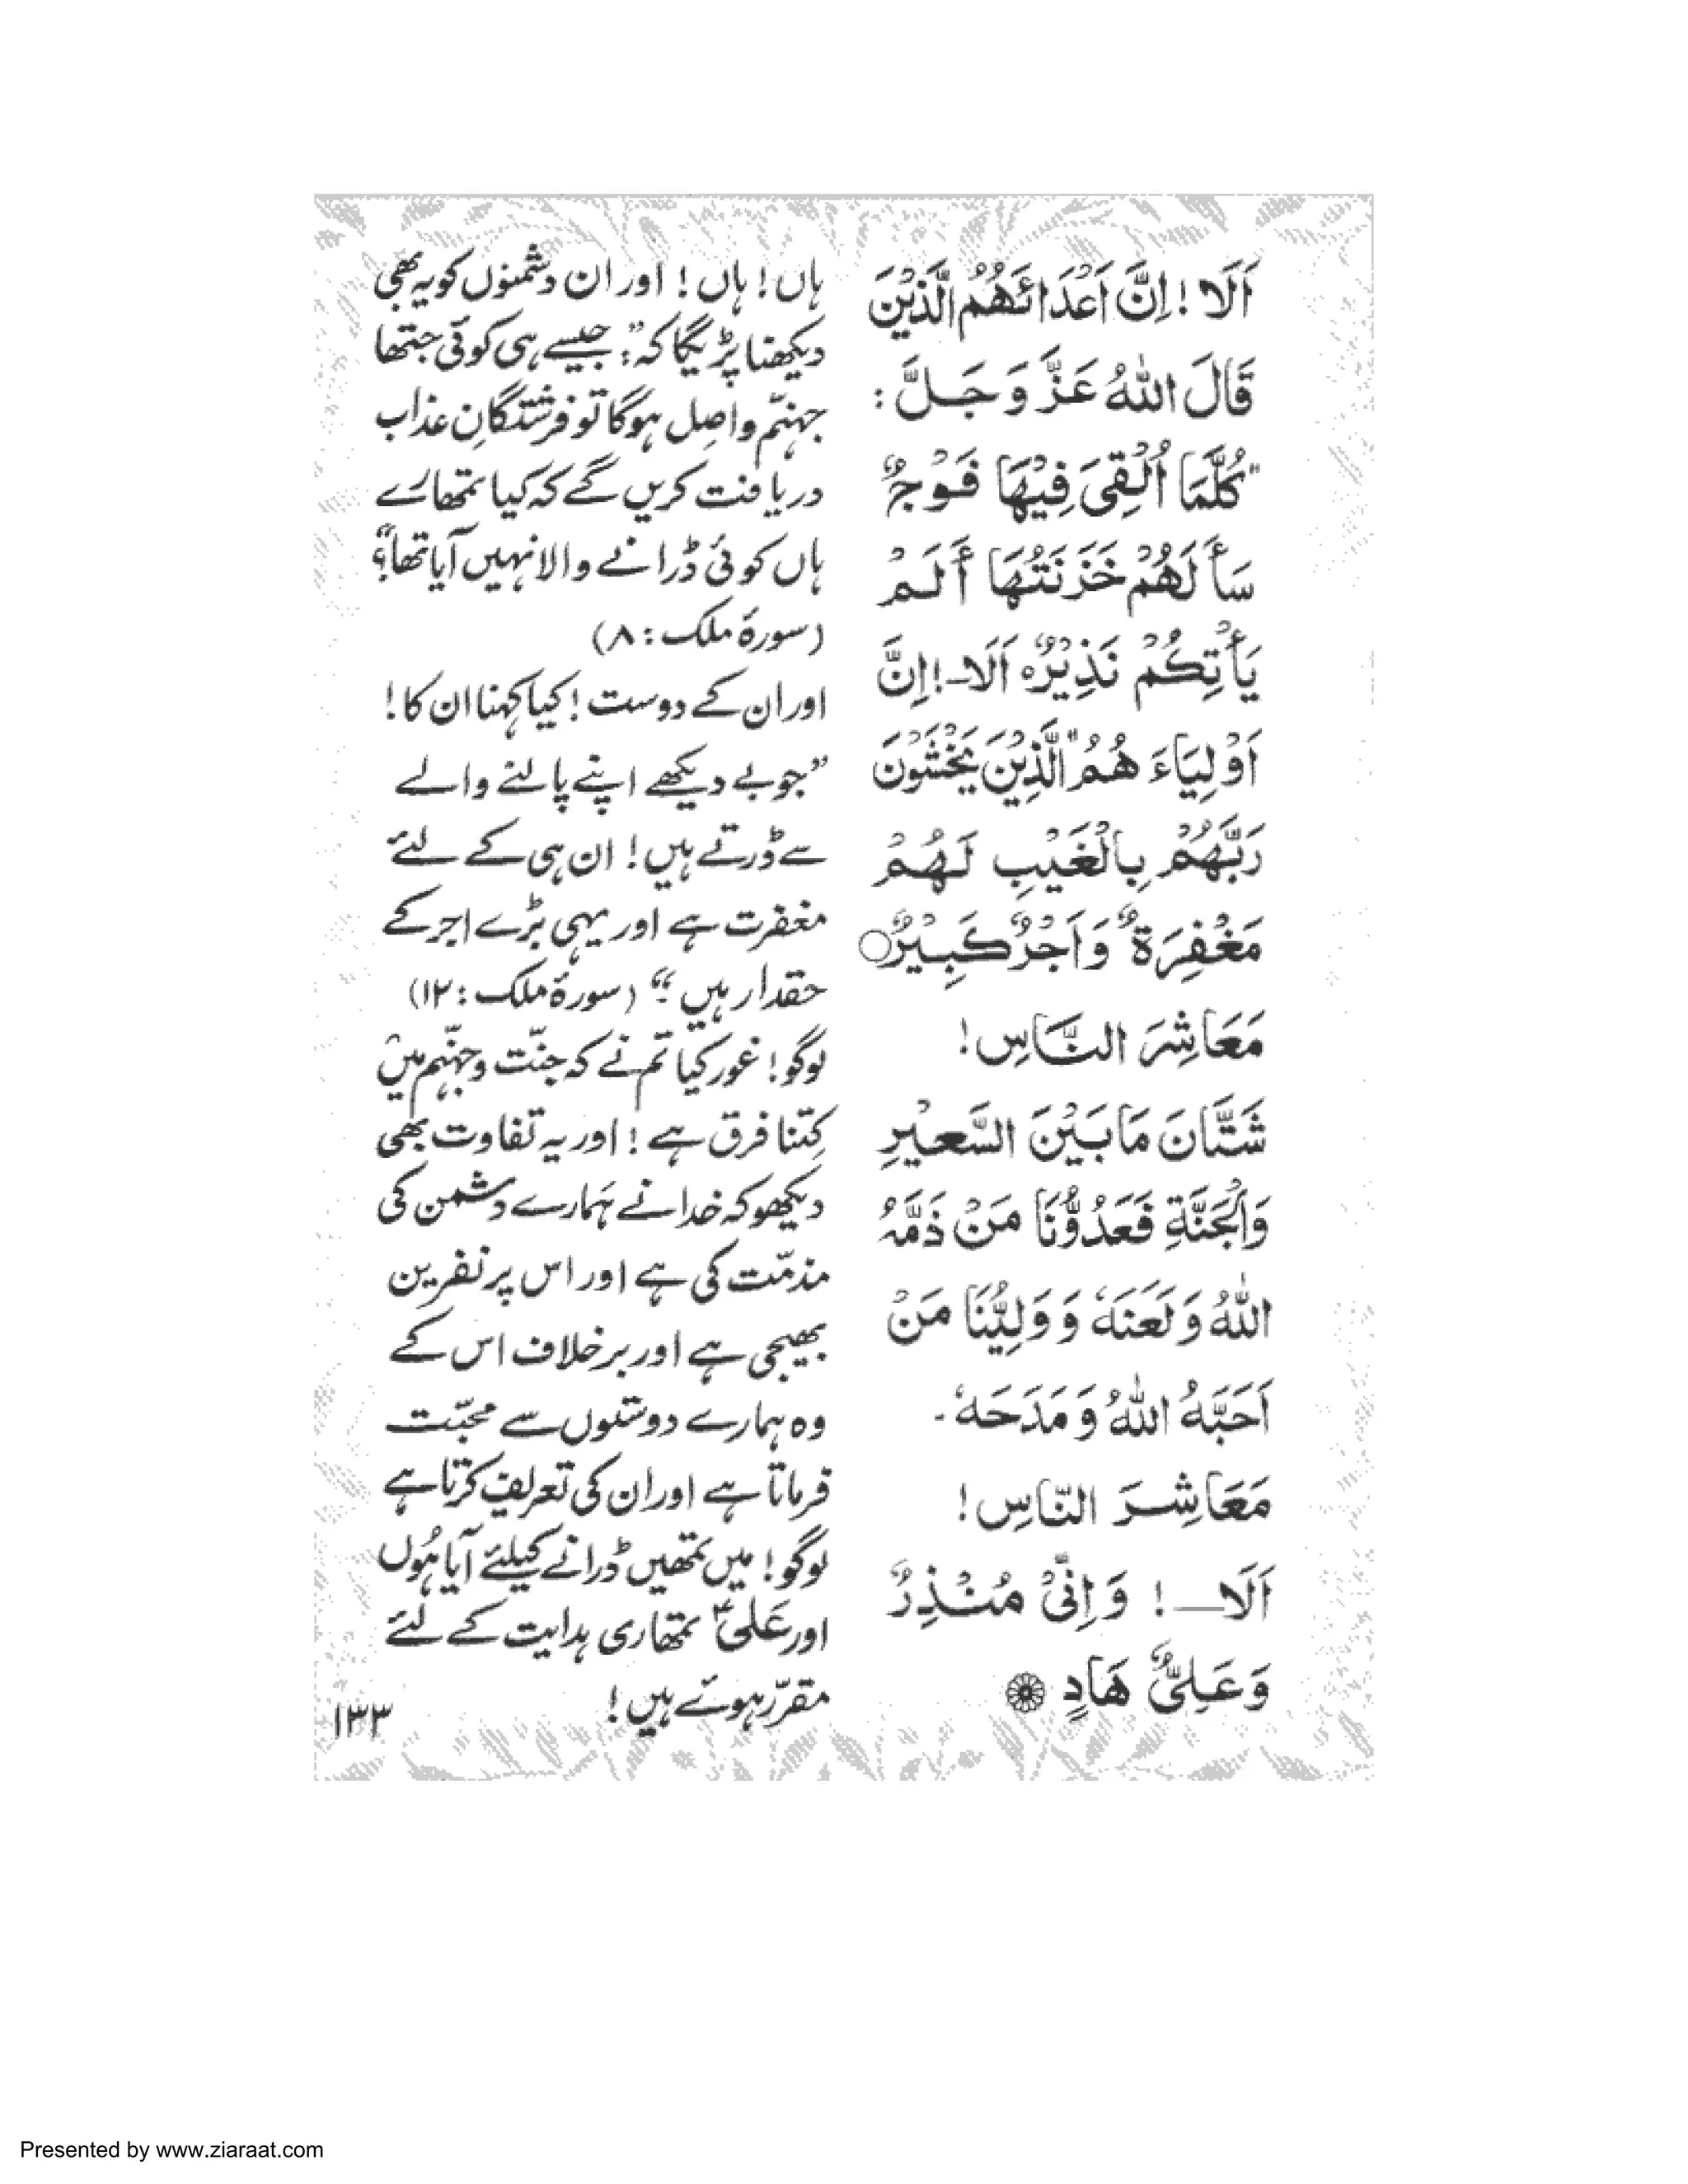 اَلَا! اِنَّ اَعْدَائَهُمُ الَّذِيْنَ
قَالَ اللهُ عَزَّ وَ جَلَّ :
"كُلَّمَا اُلْقِىَ فِيْهَا فَوْجٌ
سَأَلَهُمْ خَزَنَتُهَا أَلَمْ
يَأْتِكُمْ نَذِيْرٌ٥ اَلَا-! اِنَّ
اَوْلِيَاءَ هُمُ "الَّذِيْنَ يَخْشَوْنَ
رَبَّهُمْ بِالْغَيْبِ لَهُمْ
مَغْفِرَةٌ وَاَجْرٌ كَبِيْرٌ○
مَعَاشِرَ النَّاسِ!
شَتَّانَ مَا بَيْنَ السَّعِيْرِ
وَالْجَنَّةِ فَعَدُوُّنَا مَنْ ذَمَّهُ
اللهُ وَ لَعَنَهٗ وَ وَلِيُّنَا مَنْ
اَحَبَّهُ اللهُ وَ مَدَحَهٗ -
مَعَاشِرَ النَّاسِ!
اَلَا—! وَ اِنِّيْ مُنْذِرٌ
وَ عَلِىٌّ هَادٍ
ہاں! ہاں! اور ان دشمنوں کو یہ بھی
دیکھنا پڑیگا کہ :" جیسے ہی کوئی جتھا
جہنّم واصِل ہوگا تو فرشتگانِ عذاب
دریافت کریں گے کہ کیا تمھارے
ہاں کوئی ڈرانے والا نہیں آیا تھا؟"
(سورۂ ملک : ۸)
اور ان کے دوست! کیا کہنا ان کا!
"جو بے دیکھے اپنے پالنے والے
سے ڈرتے ہیں! ان ہی کے لئے
مغفرت ہے اور یہی بڑے اجر کے
حقدار ہیں۔" (سورۂ ملک : ۱۲)
لوگو! غور کیا تم نے کہ جنّت و جہنّم میں
کِتنا فرق ہے! اور یہ تفاوت بھی
دیکھو کہ خدا نے ہمارے دشمن کی
مذمّت کی ہے اور اس پر نفرین
بھیجی ہے اور برخلاف اس کے
وہ ہمارے دوستوں سے محبّت
فرماتا ہے اور ان کی تعریف کرتا ہے
لوگو! میں تمھیں ڈرانے کیلئے آیا ہُوں
اور عَلیؑ تمھاری ہدایت کے لئے
مقرّر ہوئے ہیں!
۱۳۳
Presented by www.ziaraat.com